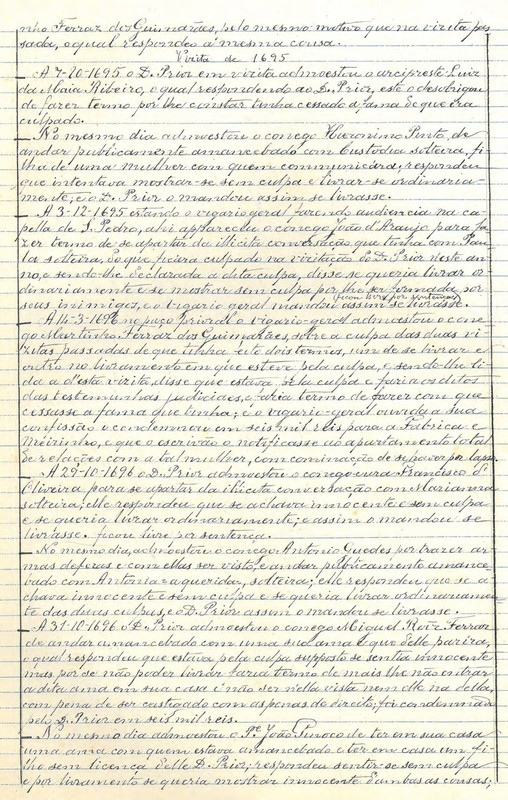 nho Ferraz dos Guimarães, pelo mesmo motivo que na visita pas-
sada, o qual respondeo a mesma cousa.
Visita de 1695
A 7-10-1695 o D. Prior em visita admoestou o arcipreste Luiz
da Maia Ribeiro, o qual respondendo ao D. Prior, este o desobrigou
de fazer termo por lhe constar tinha cessado a fama de que era
culpado.
No mesmo dia admoestou o conego Hieronimo Pinto, de
andar publicamente amancebado com Custodia solteira, fi-
lha de uma mulher com quem communicára; respondeu
que intentava mostrar-se sem culpa e livrar-se ordinaria-
mente; e o D. Prior o mandou assim se livrasse.
A 3-12-1695 estando o vigario geral fazendo audiencia na ca-
pella de S. Pedro, ahi appareceu o conego João d'Araujo para fa-
zer termo de se apartar da illicita conversação que tinha com Pau-
la solteira, do que ficára culpado na visitação do D. Prior neste an-
no, e sendo-lhe declarada a dita culpa, disse se queria livrar or-
dinariamente e se mostrar sem culpa por lhe ser formada por
seus inimigos, e o vigario geral mandou assim se livrasse.
(ficou livre por sentença)
A 14-3-1696 no paço prioral o vigario-geral admoestou o cone-
go Martinho Ferraz dos Guimarães, sobre a culpa das duas vi-
zitas passadas de que tinha feito dois termos, um de se livrar e
outro no livramento em que esteve pela culpa, e sendo-lhe li-
da a d'esta visita, disse que estava pela culpa e faria os ditos
das testemunhas judiciaes, e faria termo de fazer com que
cessasse a fama que tinha; e o vigario-geral ouvida a sua
confissão o condemnou em seis mil réis para a Fabrica e
Meirinho, e que o escrivão o notificasse ao apartamento total
de relações com a tal mulher, com cominação de se haver por lapso.
A 29-10-1696 o D. Prior admoestou o conego-cura Francisco d'
Oliveira para se apartar da illicita conversação com Marianna
solteira; elle respondeu que se achava innocente e sem culpa
e se queria livrar ordinariamente; e assim o mandou se
livrasse. ficou livre por sentença.
No mesmo dia, admoestou o conego Antonio Guedes por trazer ar-
mas defezas e com ellas ser visto, e andar publicamente amance-
bado com Antonia solteira; elle respondeu que se a-
chava innocente e sem culpa e se queria livrar ordinariamen-
te das duas culpas, e o D. Prior assim o mandou se livrasse.
A 31-10-1696 o D. Prior admoestou o conego Miguel Roiz Ferraz
de andar amancebado com uma sua ama e que d'elle parira,
o qual respondeu que estava pela culpa supposto se sentia innocente
mas por se não poder livrar faria termo de mais lhe não entrar
a dita ama em sua casa e não ser nella vista nem elle na della,
com pena de ser castigado com as penas do direito; foi condemnado
pelo D. Prior em seis mil reis.
No mesmo dia admoestou o Pe João de ter em sua casa
uma ama com quem estava amancebado e ter em casa um fi-
lho sem licença d'elle D. Prior; respondeu sentir-se sem culpa
e por livramento se queria mostrar innocente d'ambas as cousas;